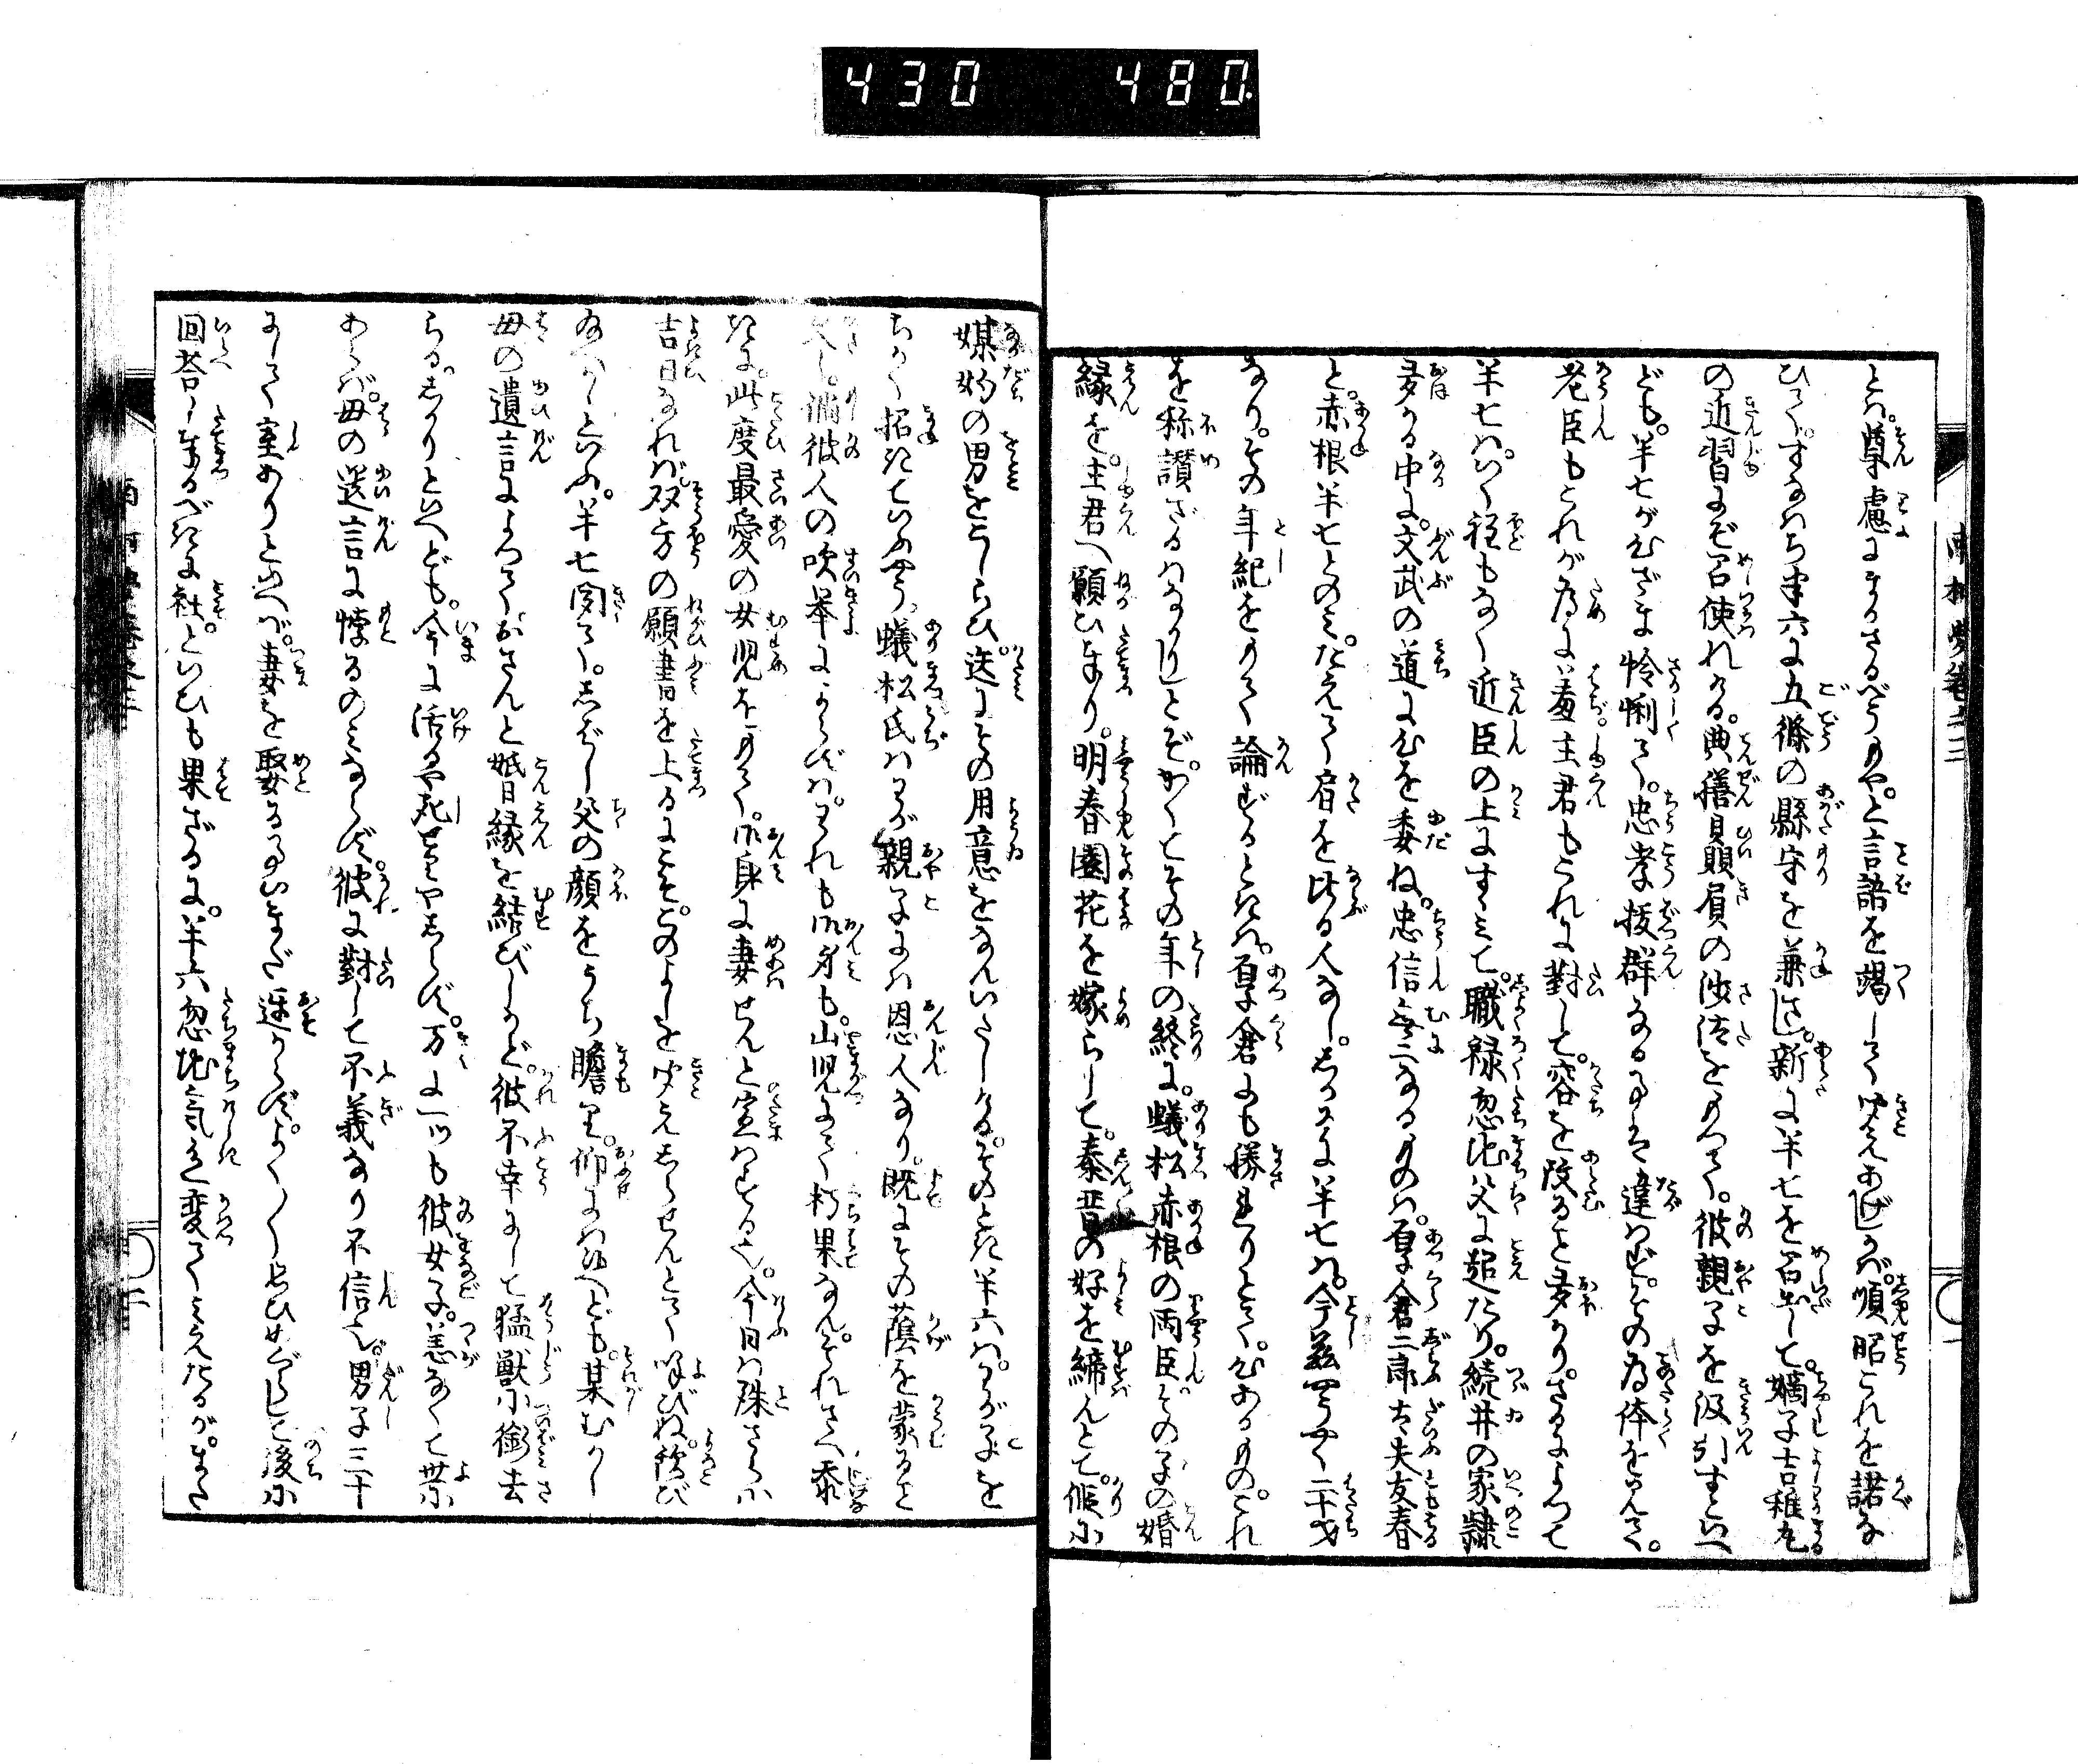 430 480
とは。尊慮にまかさるべうもや。と言語を竭して聞えあげしかば。順昭これを諾な
ひて。すなはち半六に五條の縣守を兼さし。新に半七を召出して。嫡子吉稚丸
の近習にぞ召使れける。典膳贔屓の沙汰をもつて。彼親子を汲引すといへ
ども。半七が心ざま怜悧て。忠孝抜群なる事に違はず。その為体をもて。
老臣もこれが為に羞。主君もこれに對して。容を改ると多かり。さるによつて
半七は。いく程もなく近臣の上にすゝみて。職禄忽地父に超たり。続井の家隷
多かる中に。文武の道に心を委ね。忠信無二なるものは。厚倉二郎太夫友春
と。赤根半七とのみ。たえて肩を比る人なし。しかるに半七は。今茲やうやく二十才
なり。その年紀をもて論ずるときは。厚倉にも勝れりとて。心あるもの。これ
を称讃ざるはなかりしとぞ。かくてその年の終に。蟻松赤根の両臣。その子の婚
縁を。主君へ願ひまつり。明春園花を嫁らして。秦晋の好を締んとて。俄に
媒妁の男をこしらひ。迭にその用意をなんいたしける。そのとき半六は。わが子を
ちかく招きていふやう。蟻松氏はわが親子には恩人なり。既にその蔭を蒙ること
久し。彼人の吹挙によらずは。われも御身も。山児にて朽果なん。それさへ忝
きに。此度最愛の女児をもて。御身に妻せんと宣はするに。今日は殊さらに
吉日なれば。双方の願書を上るにこそ。このよしを聞えしらせんとて呼びぬ。歓び
ねかしといふ。半七聞て。しばし父の顔をうち瞻り。仰にはゆへども。某むかし
母の遺言によつて。おさんと婚縁を結びしかど。彼不幸にして猛獣に銜去
らる。しかりといへども。今に活るや死せるやしらず。万に一ツも彼女子。恙なくて世に
あらば。母の遺言に悖るのみならず。彼に對して不義なり不信也。男子三十
にして室ありといへば。妻を娶る事いまだ遅からず。よく〳〵思ひめぐらして後に
回答しまつるべきに社。といひも果ざるに。半六忽地気色変てみえたるが。また